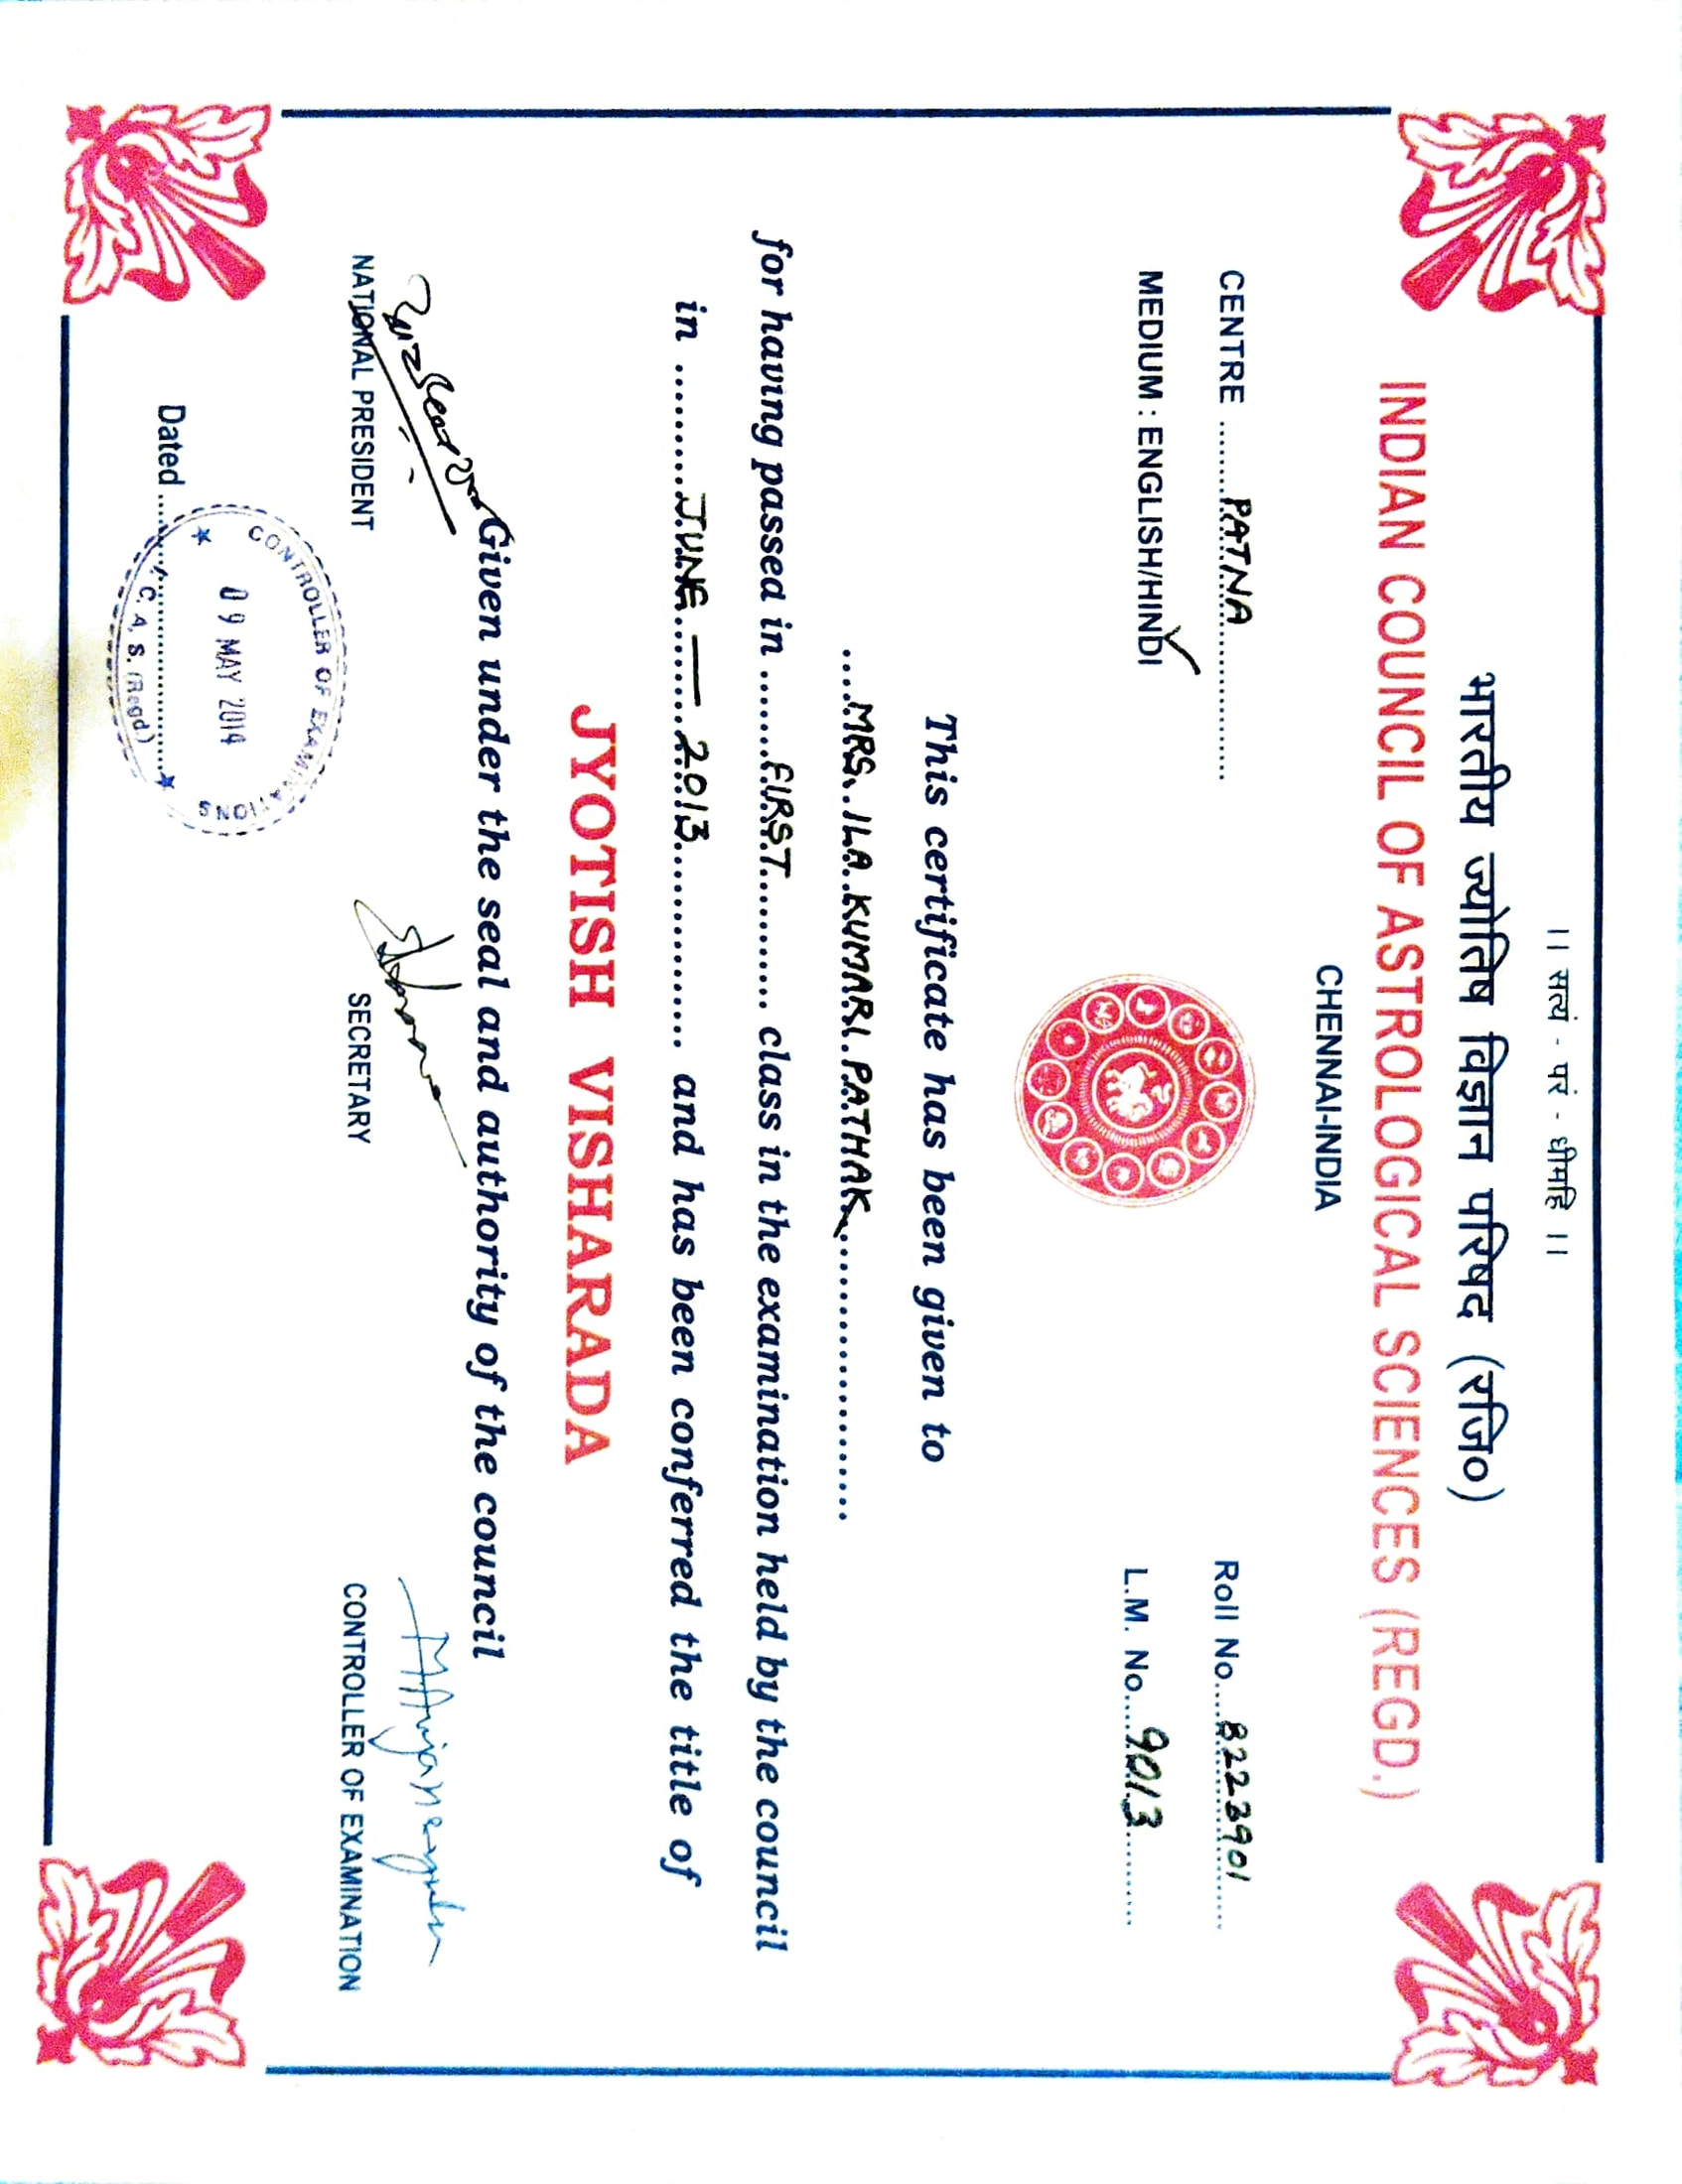 ।। सत्यं - परं - धीमहि ।।
भारतीय ज्योतिष विज्ञान परिषद (रजि०)
INDIAN COUNCIL OF ASTROLOGICAL SCIENCES (REGD.)
CHENNAI-INDIA
CENTRE ........PATNA................ Roll No....8223901........
MEDIUM : ENGLISH/HINDI L.M. No....9013..........
This certificate has been given to
....MRS. ILA KUMARI PATHAK........................
for having passed in ........FIRST............ class in the examination held by the council
in ..........JUNE — 2013.................. and has been conferred the title of
JYOTISH VISHARADA
Given under the seal and authority of the council
NATIONAL PRESIDENT SECRETARY CONTROLLER OF EXAMINATION
Dated ..............................
CONTROLLER OF EXAMINATIONS
09 MAY 2014
C. A. S. (Regd.)